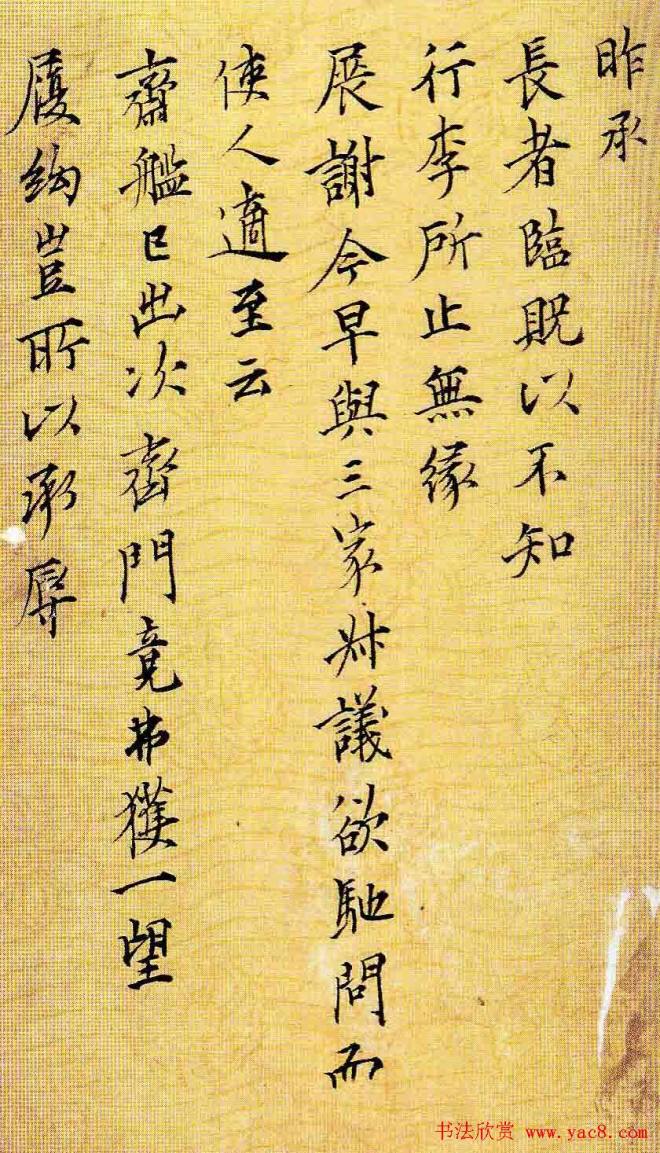 昨承
長者臨貺以不知
行李所止無緣
展謝今早與三家叔議欲馳問而
使人適至云
齋艦已出次齊門竟弗獲一望
履絇豈所以承辱
书法欣赏 www.yac8.com